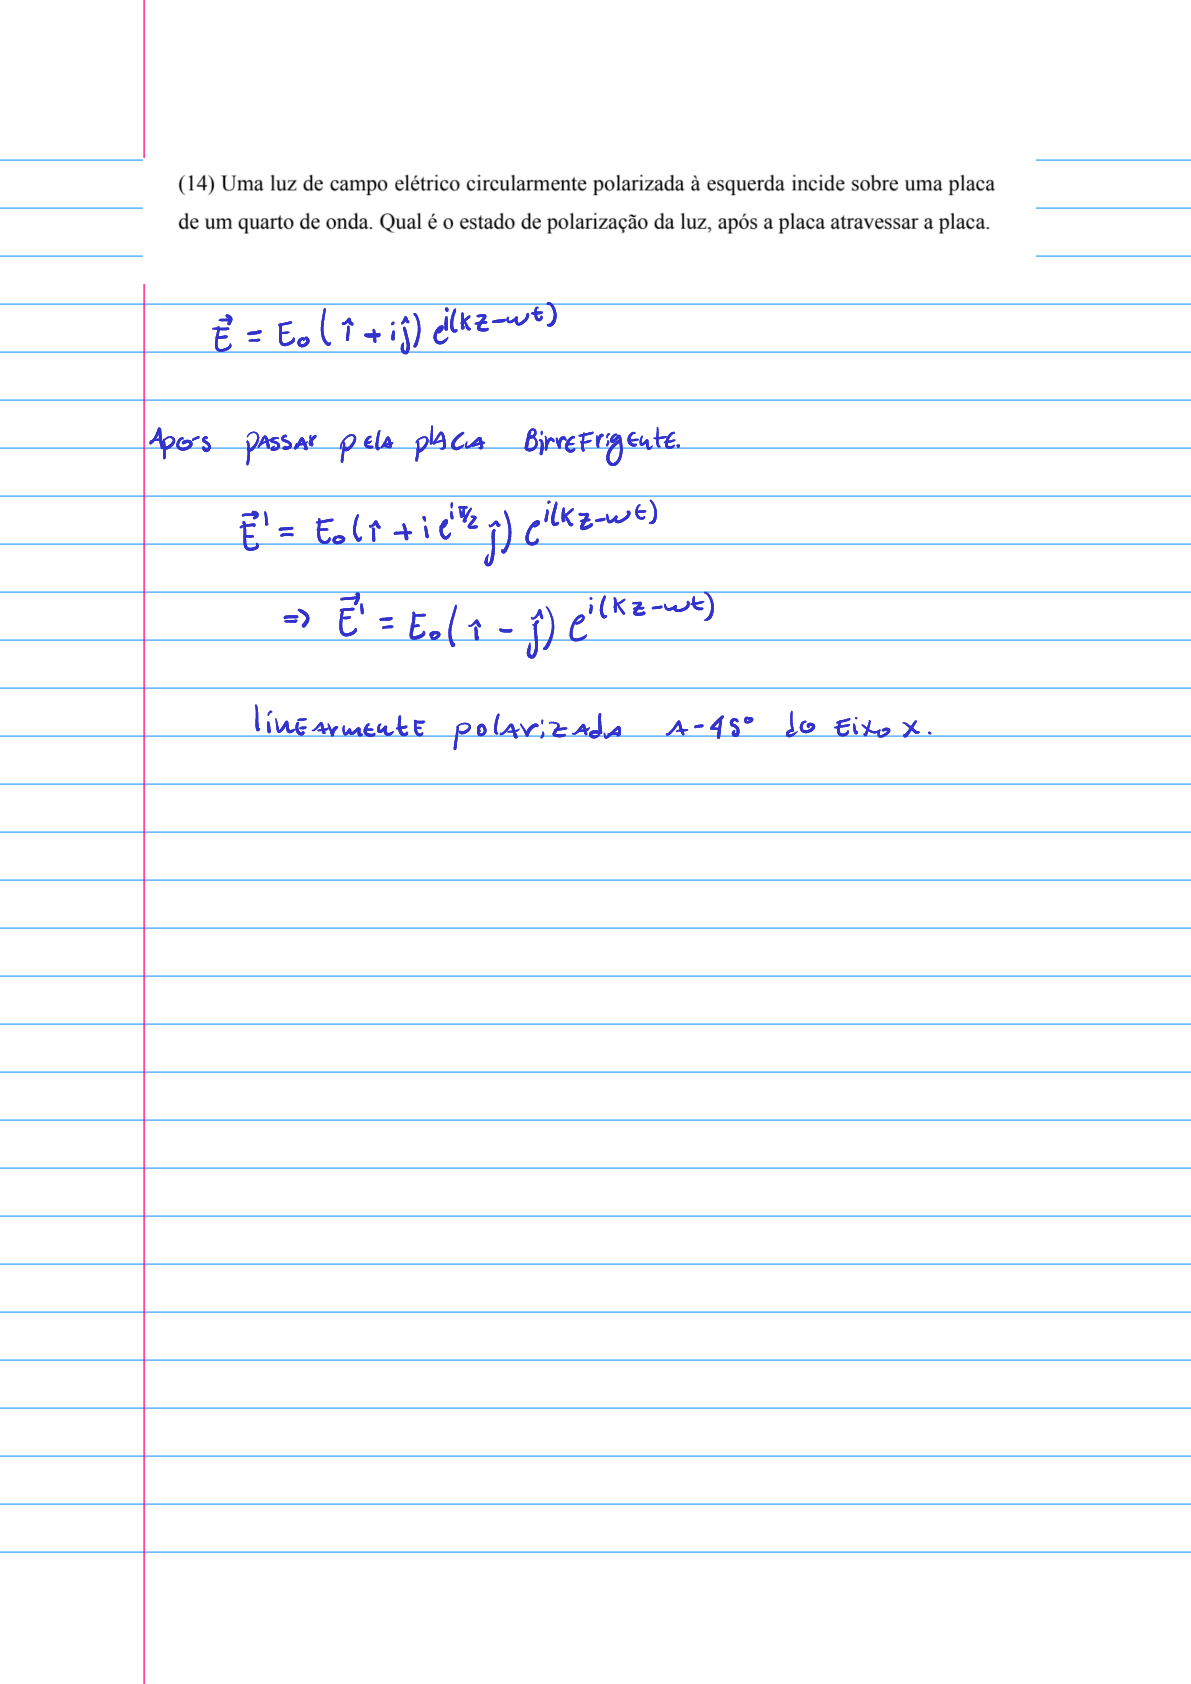 (14) Uma luz de campo elétrico circularmente polarizada à esquerda incide sobre uma placa
de um quarto de onda. Qual é o estado de polarização da luz, após a placa atravessar a placa.
E⃗ = E₀(î + iĵ) e^{i(kz-ωt)}
Após passar pela placa Birrefrigente.
E⃗' = E₀(î + i e^{iπ/2} ĵ) e^{i(kz-ωt)}
=> E⃗' = E₀(î - ĵ) e^{i(kz-ωt)}
linearmente polarizada a -45° do eixo x.